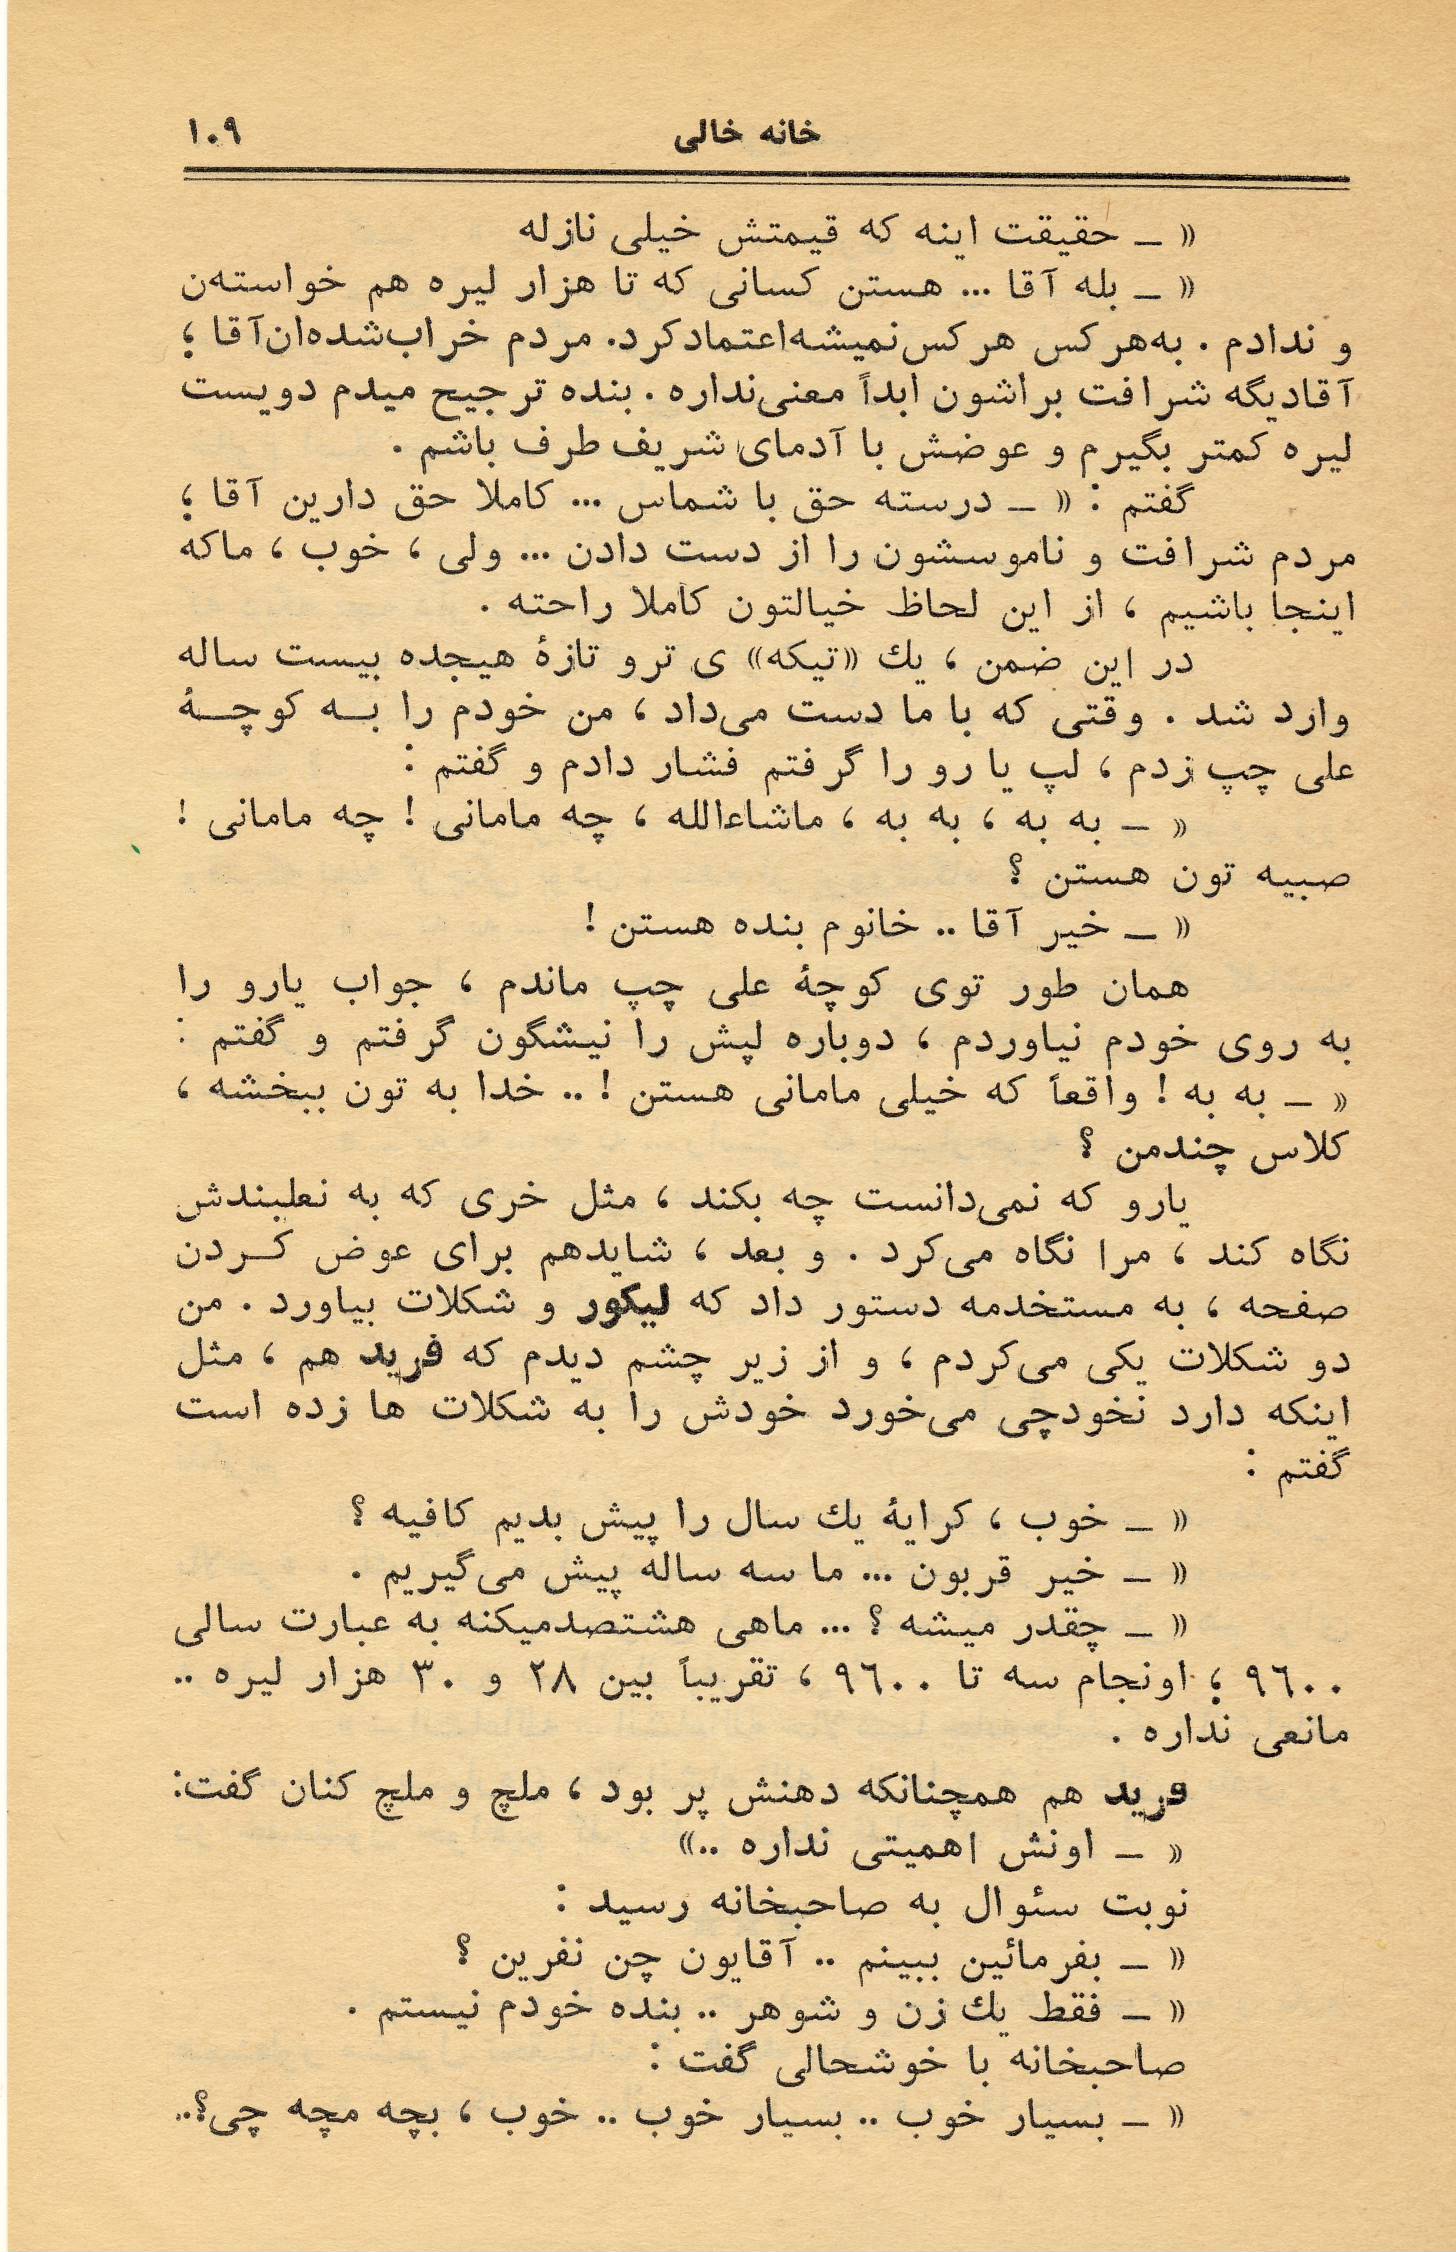 خانه خالی ۱۰۹
« ـ حقیقت اینه که قیمتش خیلی نازله
« ـ بله آقا ... هستن کسانی که تا هزار لیره هم خواسته‌ن
و ندادم . به‌هرکس هرکس‌نمیشه‌اعتمادکرد. مردم خراب‌شده‌ان‌آقا ؛
آقادیگه شرافت براشون ابداً معنی‌نداره . بنده ترجیح میدم دویست
لیره کمتر بگیرم و عوضش با آدمای شریف طرف باشم .
گفتم : « ـ درسته حق با شماس ... کاملا حق دارین آقا ؛
مردم شرافت و ناموسشون را از دست دادن ... ولی ، خوب ، ماکه
اینجا باشیم ، از این لحاظ خیالتون کاملا راحته .
در این ضمن ، یك «تیکه» ی ترو تازهٔ هیجده بیست ساله
وارد شد . وقتی که با ما دست می‌داد ، من خودم را بــه کوچــهٔ
علی چپ زدم ، لپ یارو را گرفتم فشار دادم و گفتم :
« ـ به به ، به به ، ماشاءالله ، چه مامانی ! چه مامانی !
صبیه تون هستن ؟
« ـ خیر آقا .. خانوم بنده هستن !
همان طور توی کوچهٔ علی چپ ماندم ، جواب یارو را
به روی خودم نیاوردم ، دوباره لپش را نیشگون گرفتم و گفتم :
« ـ به به ! واقعاً که خیلی مامانی هستن ! .. خدا به تون ببخشه ،
کلاس چندمن ؟
یارو که نمی‌دانست چه بکند ، مثل خری که به نعلبندش
نگاه کند ، مرا نگاه می‌کرد . و بعد ، شایدهم برای عوض کــردن
صفحه ، به مستخدمه دستور داد که لیکور و شکلات بیاورد . من
دو شکلات یکی می‌کردم ، و از زیر چشم دیدم که فرید هم ، مثل
اینکه دارد نخودچی می‌خورد خودش را به شکلات ها زده است
گفتم :
« ـ خوب ، کرایهٔ یك سال را پیش بدیم کافیه ؟
« ـ خیر قربون ... ما سه ساله پیش می‌گیریم .
« ـ چقدر میشه ؟ ... ماهی هشتصدمیکنه به عبارت سالی
۹٦۰۰ ؛ اونجام سه تا ۹٦۰۰ ، تقریباً بین ۲۸ و ۳۰ هزار لیره ..
مانعی نداره .
فرید هم همچنانکه دهنش پر بود ، ملچ و ملچ کنان گفت:
« ـ اونش اهمیتی نداره ..»
نوبت سئوال به صاحبخانه رسید :
« ـ بفرمائین ببینم .. آقایون چن نفرین ؟
« ـ فقط یك زن و شوهر .. بنده خودم نیستم .
صاحبخانه با خوشحالی گفت :
« ـ بسیار خوب .. بسیار خوب .. خوب ، بچه مچه چی؟..